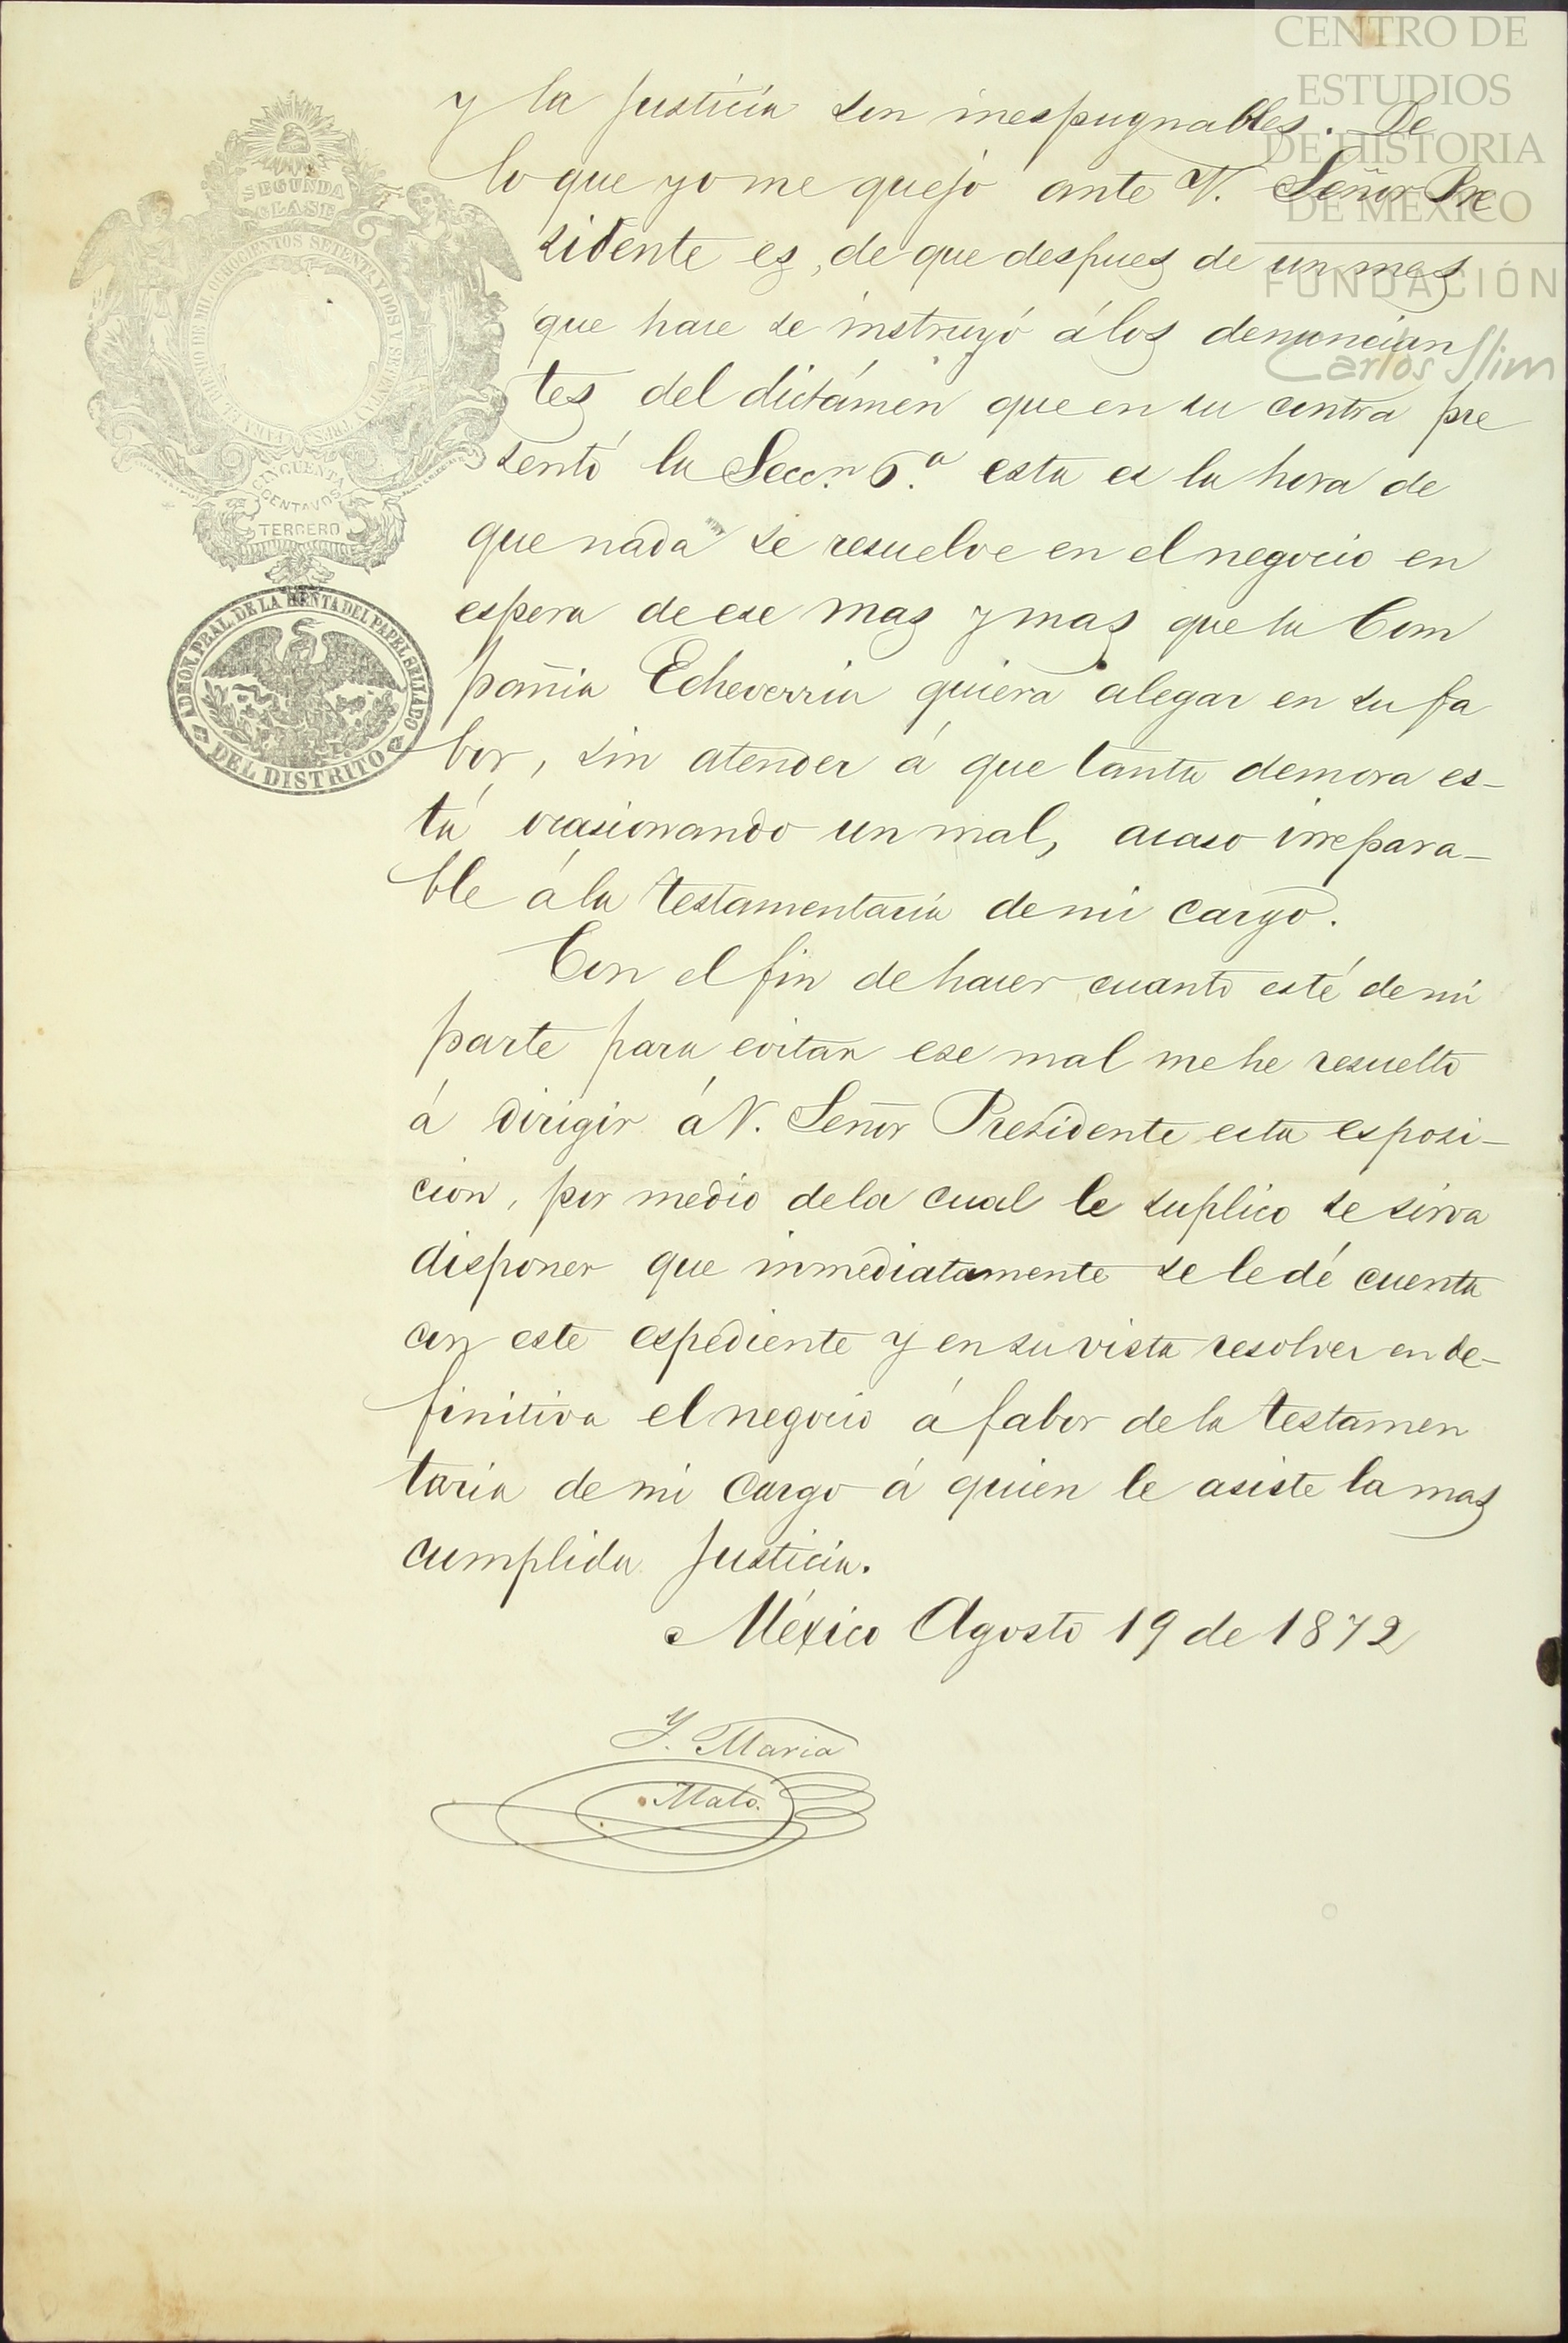 CENTRO DE
ESTUDIOS
DE HISTORIA
DE MÉXICO
FUNDACIÓN
Carlos Slim
SEGUNDA
CLASE
CINCUENTA
CENTAVOS
TERCERO
ADMON. PRAL. DE LA RENTA DEL PAPEL SELLADO
DEL DISTRITO
y la justicia son inespugnables. De
lo que yo me quejo ante V. Señor Pre
sidente es, de que despues de un mes
que hace se instruyó á los denuncian
tes del dictámen que en su contra pre
sentó la Seccn. 6.a esta es la hora de
que nada se resuelve en el negocio en
espera de ese mas y mas que la Com
pañia Echeverria quiera alegar en su fa
bor, sin atender á que tanta demora es-
tá ocasionando un mal, acaso irrepara-
ble á la testamentaría de mi cargo.
Con el fin de hacer cuanto esté de mi
parte para evitar ese mal me he resuelto
á dirigir á V. Señor Presidente esta esposi-
cion, por medio de la cual le suplico se sirva
disponer que inmediatamente se le dé cuenta
con este espediente y en su vista resolver en de-
finitiva el negocio á fabor de la testamen
taria de mi cargo á quien le asiste la mas
cumplida justicia.
México Agosto 19 de 1872
Y. Maria
Mató.